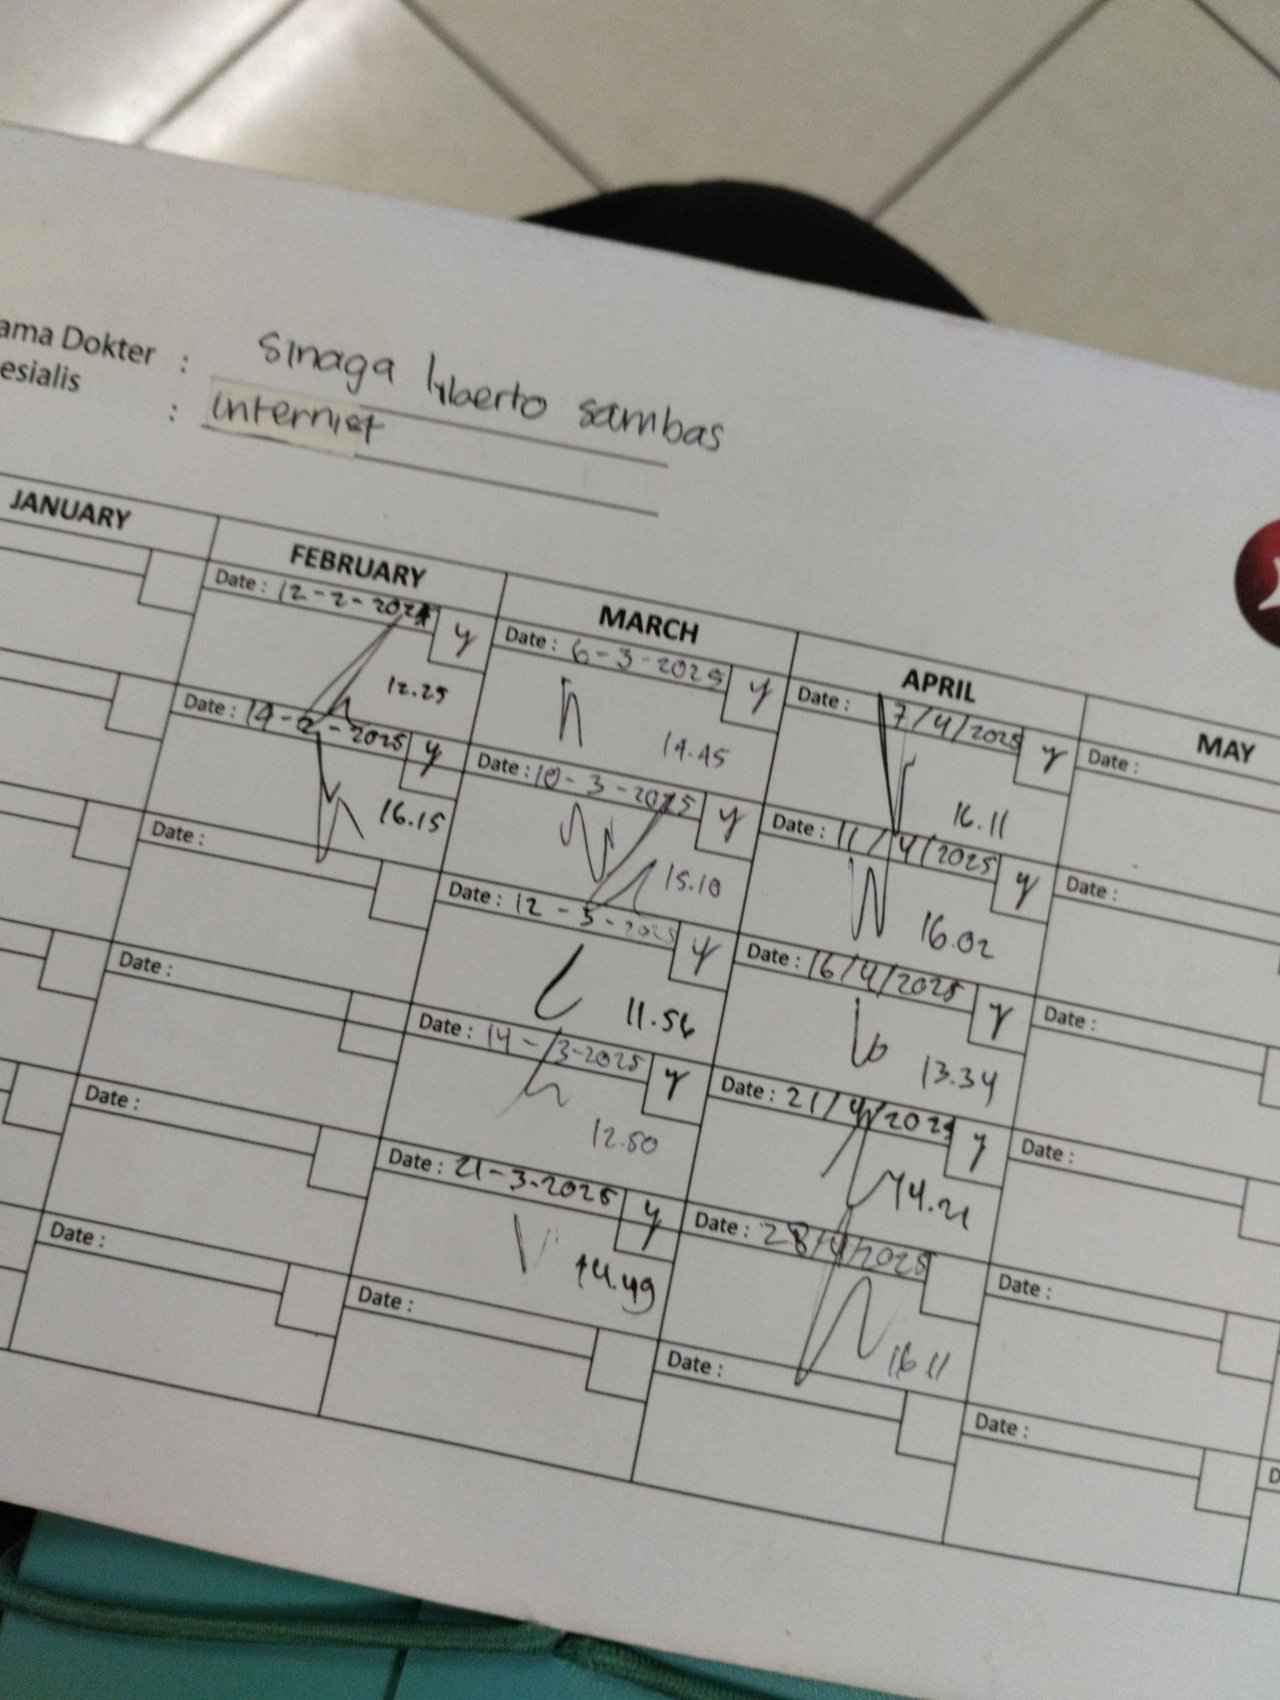 ama Dokter : Sinaga liberto sambas
esialis : internist
JANUARY FEBRUARY MARCH APRIL MAY
Date : 12-2-2025 y
12.25
Date : 14-2-2025 y
16.15
Date :
Date :
Date :
Date :
Date : 6-3-2025 y
14.45
Date : 10-3-2025 y
15.10
Date : 12-3-2025 y
11.56
Date : 14-3-2025 y
12.50
Date : 21-3-2025 y
14.49
Date :
Date : 7/4/2025 y
16.11
Date : 11/4/2025 y
16.02
Date : 16/4/2025 y
13.34
Date : 21/4/2025 y
14.21
Date : 28/4/2025
16.11
Date :
Date :
Date :
Date :
Date :
Date :
Date :
D